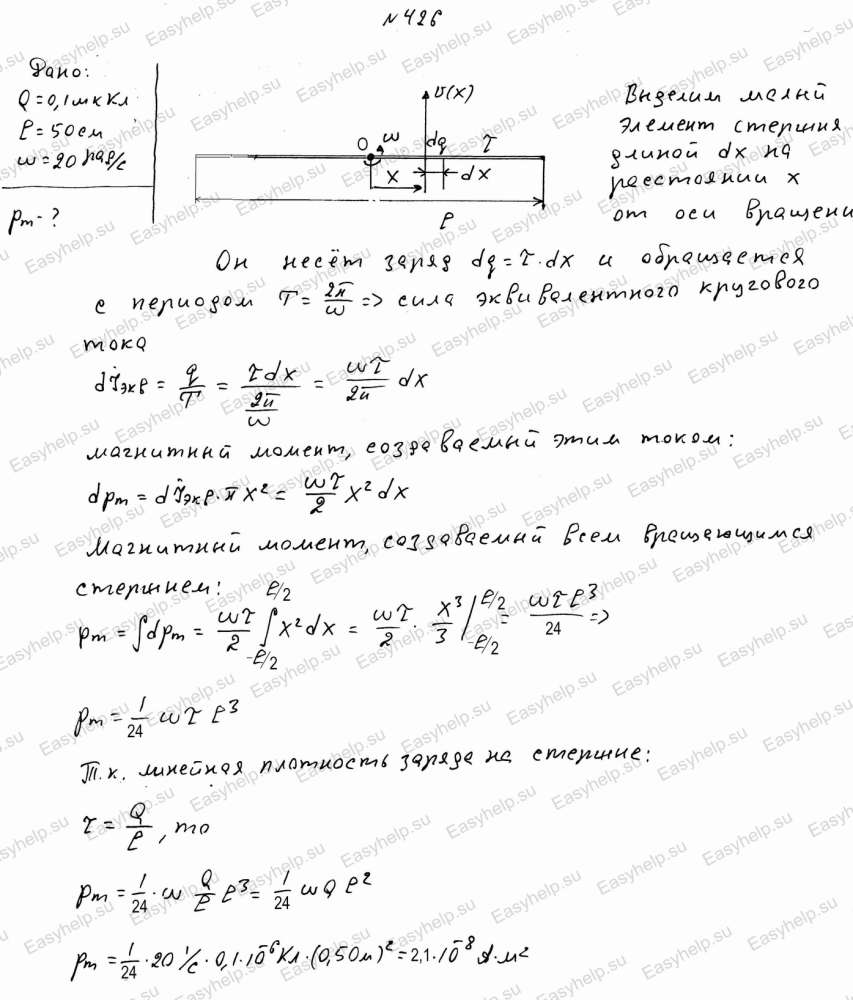 №426
Дано:
Q = 0,1 мкКл
ℓ = 50 см
ω = 20 рад/с
pm - ?
υ(x)
O ω dq τ
x dx
ℓ
Выделим малый
элемент стержня
длиной dx на
расстоянии x
от оси вращени
Он несёт заряд dq = τ·dx и обращается
с периодом T = 2π/ω => сила эквивалентного кругового
тока
dIэкв = q/T = τdx/(2π/ω) = ωτ/2π dx
магнитный момент, создаваемый этим током:
dpm = dIэкв·πx² = ωτ/2 x²dx
Магнитный момент, создаваемый всем вращающимся
стержнем:
pm = ∫dpm = ωτ/2 ∫_{-ℓ/2}^{ℓ/2} x²dx = ωτ/2 · x³/3 |_{-ℓ/2}^{ℓ/2} = ωτℓ³/24 =>
pm = 1/24 ωτℓ³
Т.к. линейная плотность заряда на стержне:
τ = Q/ℓ, то
pm = 1/24·ω Q/ℓ ℓ³ = 1/24 ωQℓ²
pm = 1/24·20 1/с·0,1·10⁻⁶Кл·(0,50м)² = 2,1·10⁻⁸ А·м²
Easyhelp.su